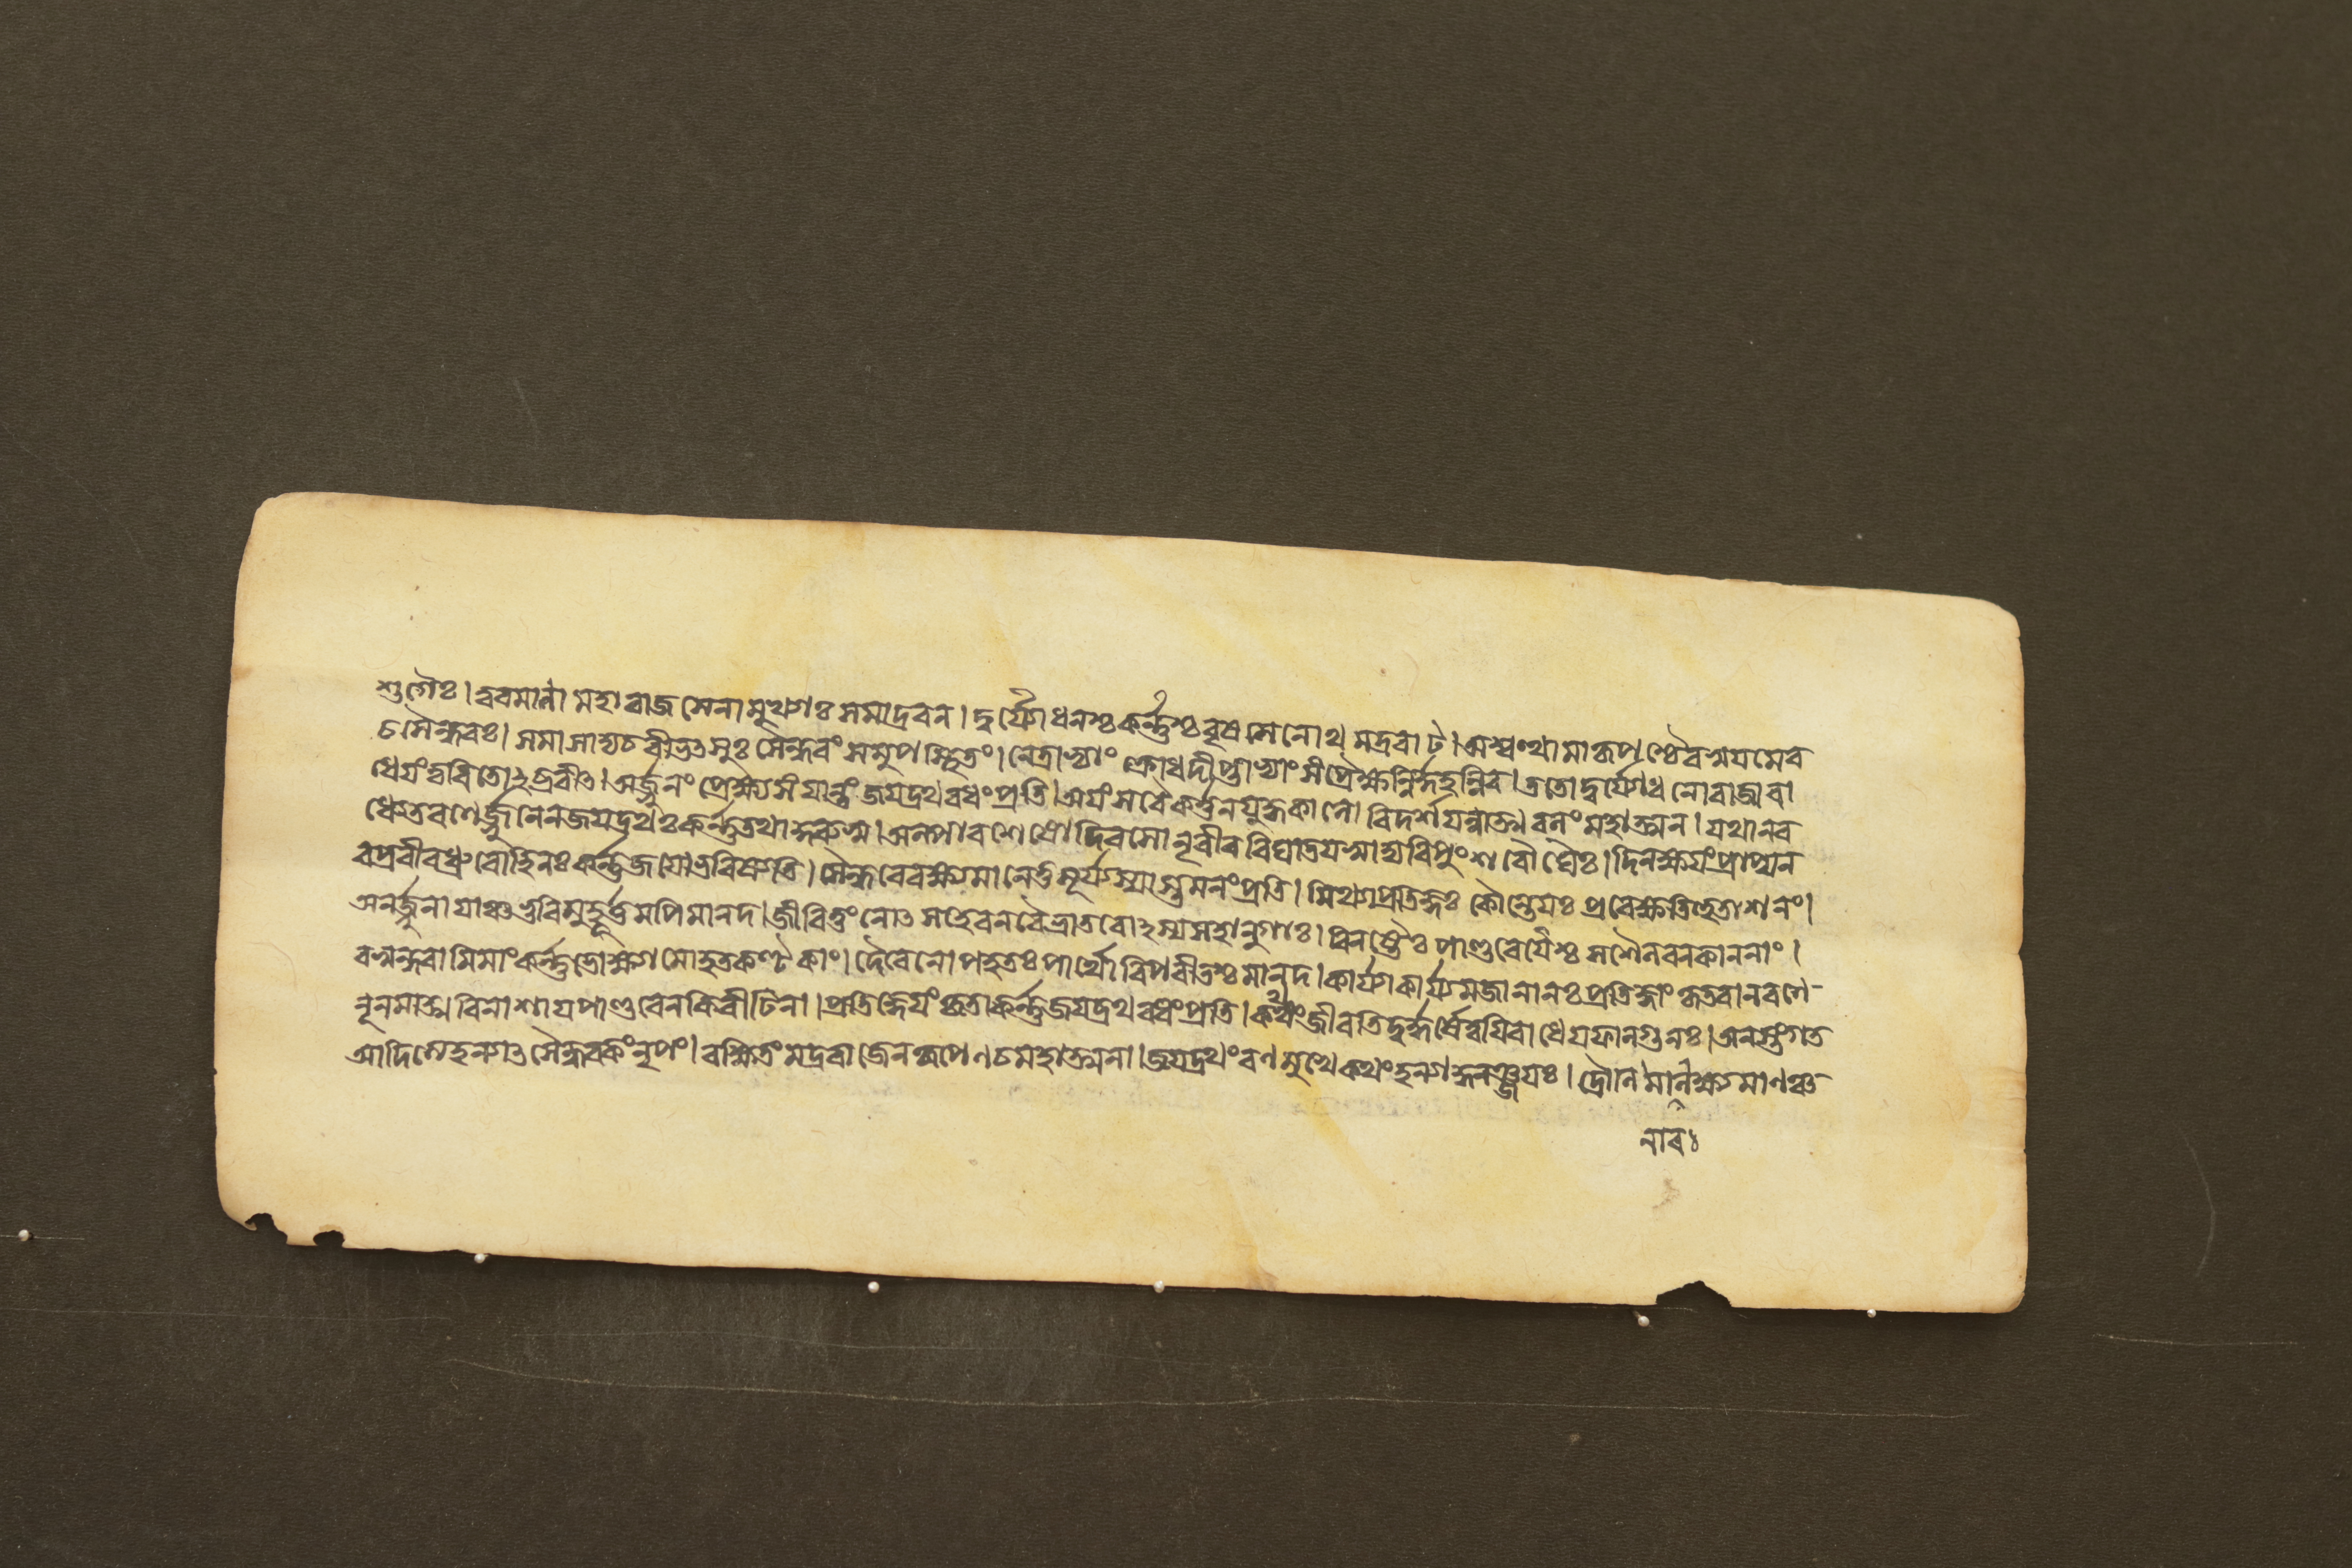 শুগৈঃ। ত্বৰমাণা মহাৰাজ সেনামুখ্যাঃ সমাদ্রবন। দুর্য্যোধনশ্চ কর্ণ্ণশ্চ বৃষসেনোথ মদ্রৰাট। অশ্বত্থামা কৃপশ্চৈব স্বয়মেব
চ সৈন্ধবঃ। সমাসাদ্য চ বীভৎসুঃ সৈন্ধবং সমুপস্থিতং। নেত্রাভ্যাং ক্রোধদীপ্তাভ্যাং সংপ্রৈক্ষন্নির্দ্দহন্নিব। ততো দুর্য্যোধনো ৰাজা ৰা
ধেয়ং ত্বৰিতোঽব্রবীৎ। অর্জ্জুনং প্রেক্ষ্য সংযান্তং জয়দ্রথবধং প্রতি। অয়ং স বৈকর্ত্তন যুদ্ধকালো বিদর্শয়স্বাত্মবলং মহাত্মন। যথা ন ব
ধ্যেত ৰণেঽর্জ্জুনেন জয়দ্রথঃ কর্ণ্ণ তথা কুৰুষ্ব। অল্পাবশেষো দিবসো নৃবীৰ বিঘাতয়স্বাদ্য ৰিপুং শৰৌঘৈঃ। দিনক্ষয়ং প্রাপ্য ন
ৰপ্রবীৰ ধ্রুবো হি নঃ কর্ণ্ণ জয়ো ভবিষ্যতি। সৈন্ধবে ৰক্ষ্যমানে তু সূর্য্যস্যাস্তমনং প্রতি। মিথ্যাপ্রতিজ্ঞঃ কৌন্তেয়ঃ প্রবেক্ষ্যতি হুতাশনং।
অনর্জ্জুনায়াঞ্চ ভুবি মুহূর্ত্তমপি মানদ। জীবিতুং নোৎসহেৰন বৈ ভ্রাতৰোঽস্য সহানুগাঃ। বিনষ্টৈঃ পাণ্ডবেয়ৈশ্চ সশৈলবনকাননাং।
বসুন্ধৰামিমাং কর্ণ্ণ ভোক্ষ্যামো হতকণ্টকাং। দৈবেনোপহতঃ পার্থো বিপৰীতশ্চ মানদ। কার্য্যাকার্য্যমজানানঃ প্রতিজ্ঞাং কৃতবান ৰণে
নূনমাত্মবিনাশায় পাণ্ডবেন কিৰীটিনা। প্রতিজ্ঞেয়ং কৃতা কর্ণ্ণ জয়দ্রথবধং প্রতি। কথং জীবতি দুর্দ্ধর্ষে ত্বয়ি ৰাধেয় ফাল্গুনঃ। অনস্তংগত
আদিত্যে হন্যাৎ সৈন্ধবকং নৃপং। ৰক্ষিতং মদ্রৰাজেন কৃপেণ চ মহাত্মনা। জয়দ্রথং ৰণমুখে কথং হন্যাদ্ধনঞ্জয়ঃ। ৰক্ষ্যমাণঞ্চ